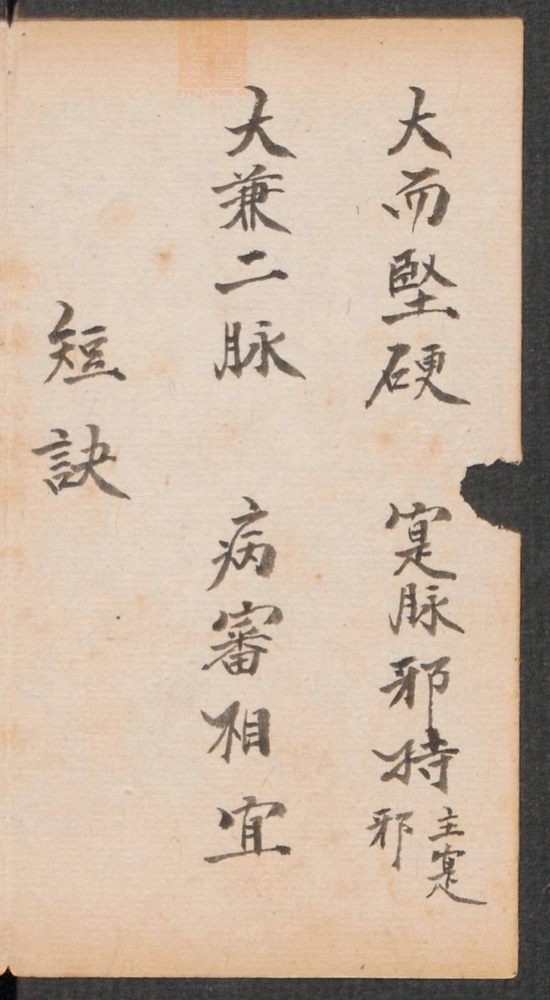 大而堅硬　寔脉邪持主寔邪
大兼二脉　病審相宜
短訣